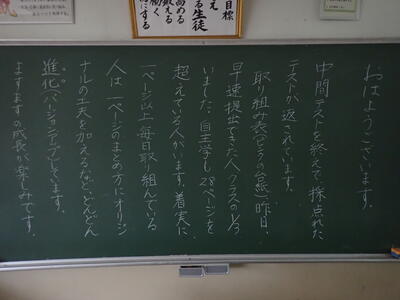 目標
え
る生徒
高める
鍛える
働く
にする
おはようございます。
中間テストを終えて採点された
テストが返されています。
取り組み表(ビンゴの台紙)昨日、
早速提出できた人クラスの1/3
いました。自主学も28ページを
超えている人がいます。着実に、
一ページ以上毎日取り組んでいる
人は一ページのまとめ方にオリジ
ナルの工夫を加えるなど、どんどん
進化(バージョンアップ)しています。
ますますの成長が楽しみです。